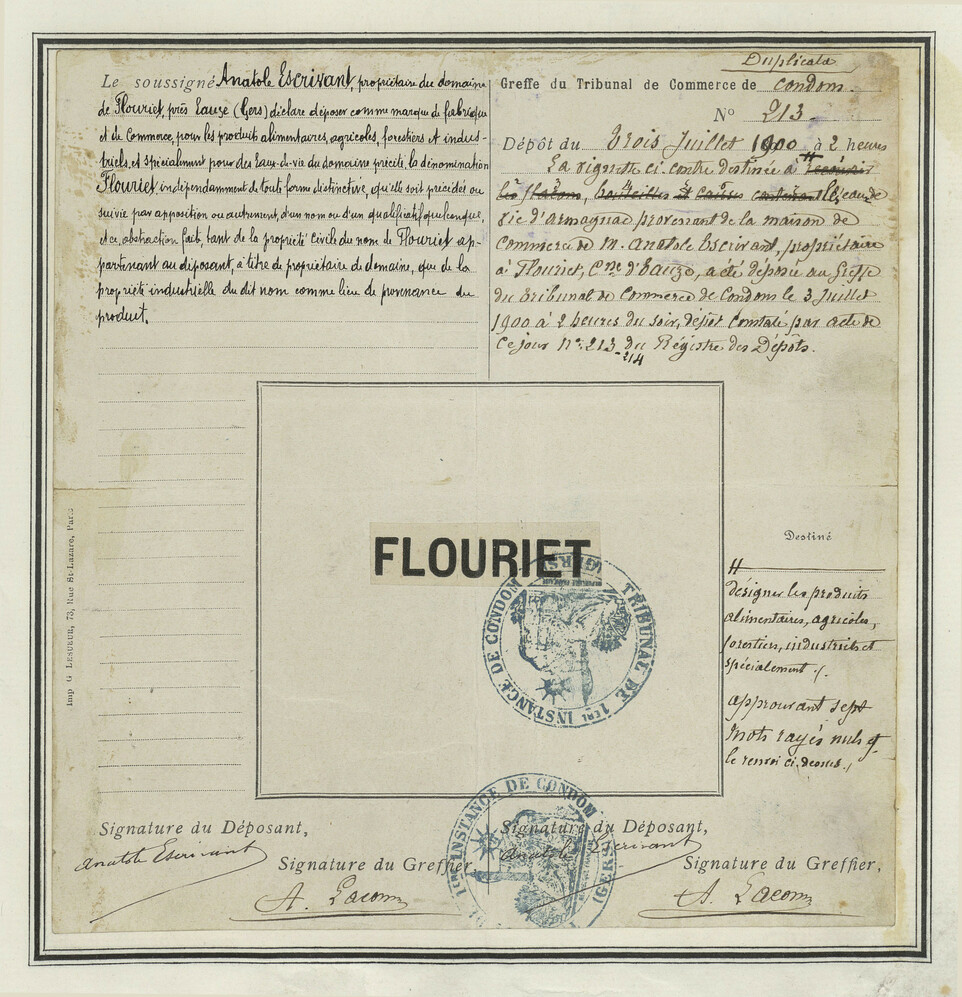 Duplicata
Le soussigné Anatole Escrivant, propriétaire du domaine
de Flouriet, près Eauze (Gers) déclare déposer comme marque de fabrique
et de Commerce, pour les produits alimentaires, agricoles, forestiers et indus-
triels et spécialement pour des Eaux-de-vie du domaine précité, la dénomination
Flouriet indépendamment de toute forme distinctive, qu'elle soit précédée ou
suivie par apposition ou autrement, d'un nom ou d'un qualificatif quelconque,
et ce, abstraction faite, tant de la propriété Civile du nom de Flouriet ap-
partenant au déposant, à titre de propriétaire de domaine, que de la
propriété industrielle du dit nom comme lieu de provenance du
produit.
Greffe du Tribunal de Commerce de Condom.
No 213
Dépôt du Trois Juillet 1900 à 2 heures
La vignette ci contre destinée à #
les flacons, bouteilles et caisses l'eau de
vie d'armagnac provenant de la maison de
Commerce de M. Anatole Escrivant, propriétaire
à Flouriet, Cne d'Eauze, a été déposée au Greffe
du Tribunal de Commerce de Condom le 3 Juillet
1900 à 2 heures du soir, dépôt Constaté par acte de
Ce jour No 213-214 du Régistre des Dépôts.
FLOURIET
TRIBUNAL DE 1ère INSTANCE DE CONDOM (GERS)
Imp G. LESUEUR, 73, Rue St-Lazare, Paris
Destiné
#
désigner les produits
alimentaires, agricoles,
forestiers, industriels et
spécialement /.
Approuvant sept
mots rayés nuls &
le renvoi ci-dessus./
Signature du Déposant,
Anatole Escrivant
Signature du Greffier,
A. Lacom
Signature du Déposant,
Anatole Escrivant
Signature du Greffier,
A. Lacom
1ère INSTANCE DE CONDOM (GERS)